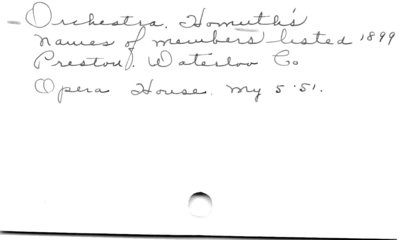 - Orchestra, Homuth's
names of members listed 1899
Preston. Waterloo Co
Opera House. My 5 '51.